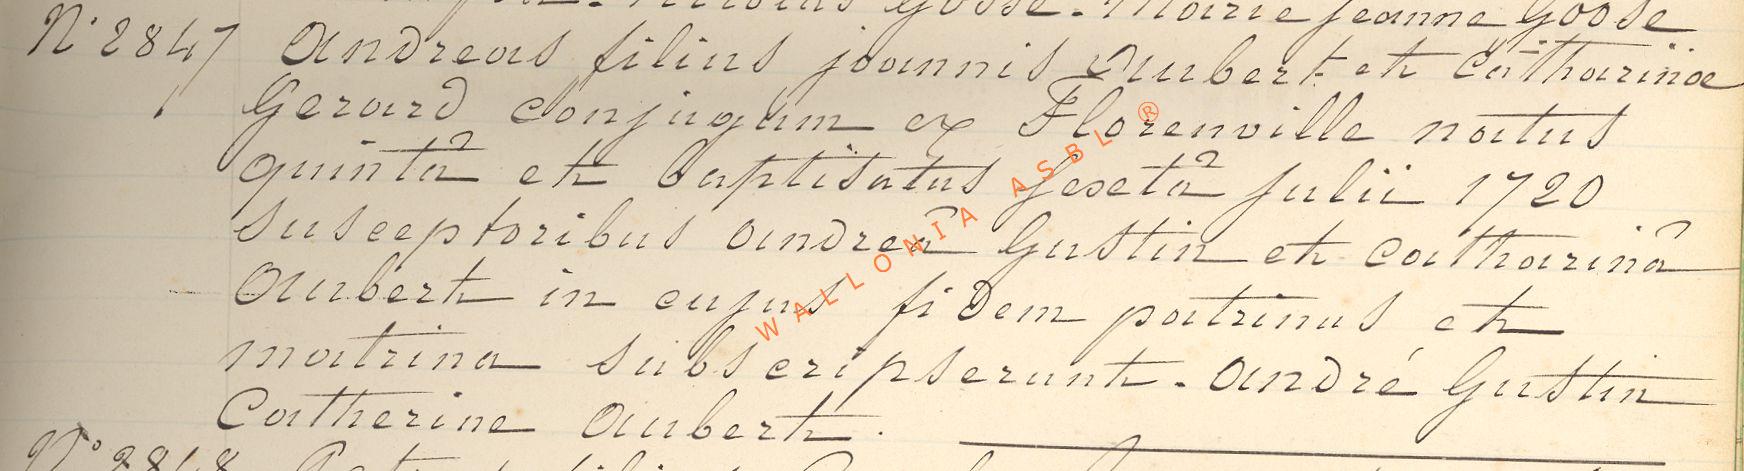 Nicolas Gosse. Marie jeanne Gosse
N° 2847 Andreas filius joannis Aubert et Catharinae
Gerard conjugum ex Florenville natus
quintâ et baptisatus sextâ julii 1720
susceptoribus Andreâ Gustin et Catharinâ
Aubert in cujus fidem patrinus et
matrina subscripserunt. André Gustin
Catherine Aubert.
N° 2848
WALLONIA ASBL ®